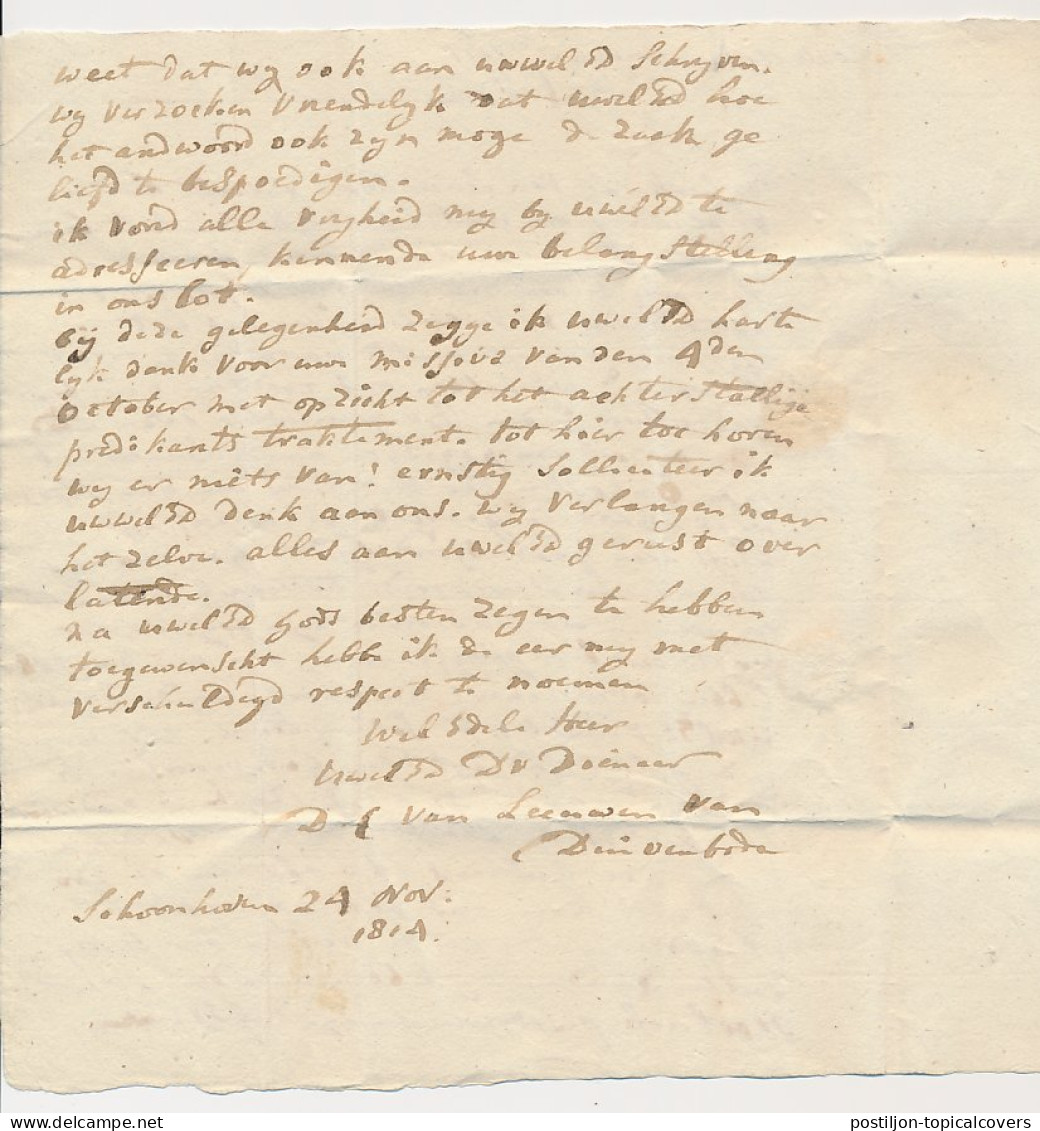 weet dat wy ook aan uwwel Ed Schryven.
wy verzoeken vriendelyk dat uwel Ed hoe
het andwoord ook zyn moge de zaak ge
liefd te bespoedigen.
ik vond alle vryheid my by uwel Ed te
adresseeren, kennende uwe belangstelling
in ons lot.
bij deze gelegenheid zegge ik uwel Ed harte
lyk dank voor uwe missive van den 4den
October met opzicht tot het achterstallige
predikants traktement. tot hier toe horen
wy er niets van! ernstig solliciteer ik
uwwel Ed denk aan ons. wy verlangen naar
het zelve. alles aan uwel Ed gerust over
latende.
na uwel Ed Gods besten zegen te hebben
toegewenscht hebbe ik de eer my met
verschuldigd respect te noemen
Wel Edele Heer
Uwel Ed Dv Dienaar
D van Leeuwen van
Duivenbode
Schoonhoven 24 Nov:
1814.
postiljon-topicalcovers